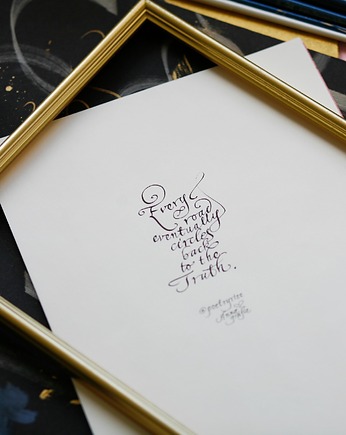 Every
road
eventually
circles
back
to the
Truth.